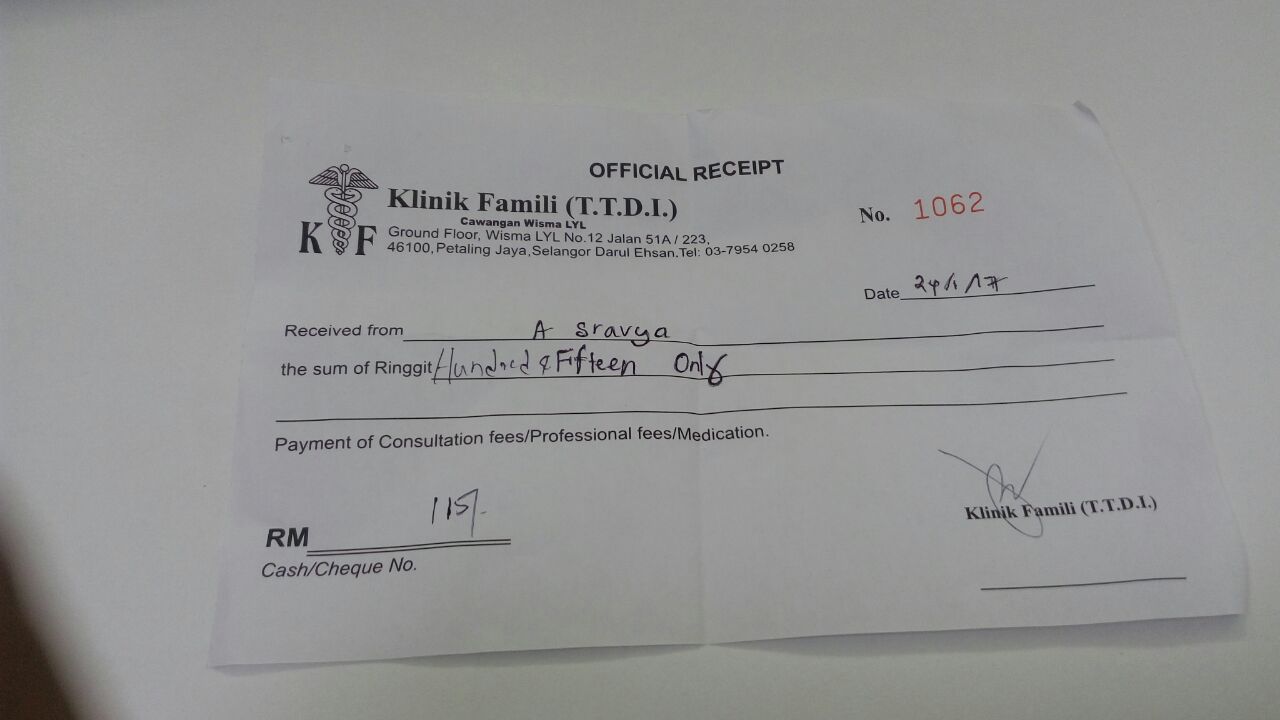 OFFICIAL RECEIPT
Klinik Famili (T.T.D.I.)
Cawangan Wisma LYL
K F
Ground Floor, Wisma LYL No.12 Jalan 51A / 223,
46100, Petaling Jaya, Selangor Darul Ehsan. Tel: 03-7954 0258
No. 1062
Date 24/1/17
Received from A Sravya
the sum of Ringgit Hundred & Fifteen Only
Payment of Consultation fees/Professional fees/Medication.
RM 115/-
Cash/Cheque No.
Klinik Famili (T.T.D.I.)